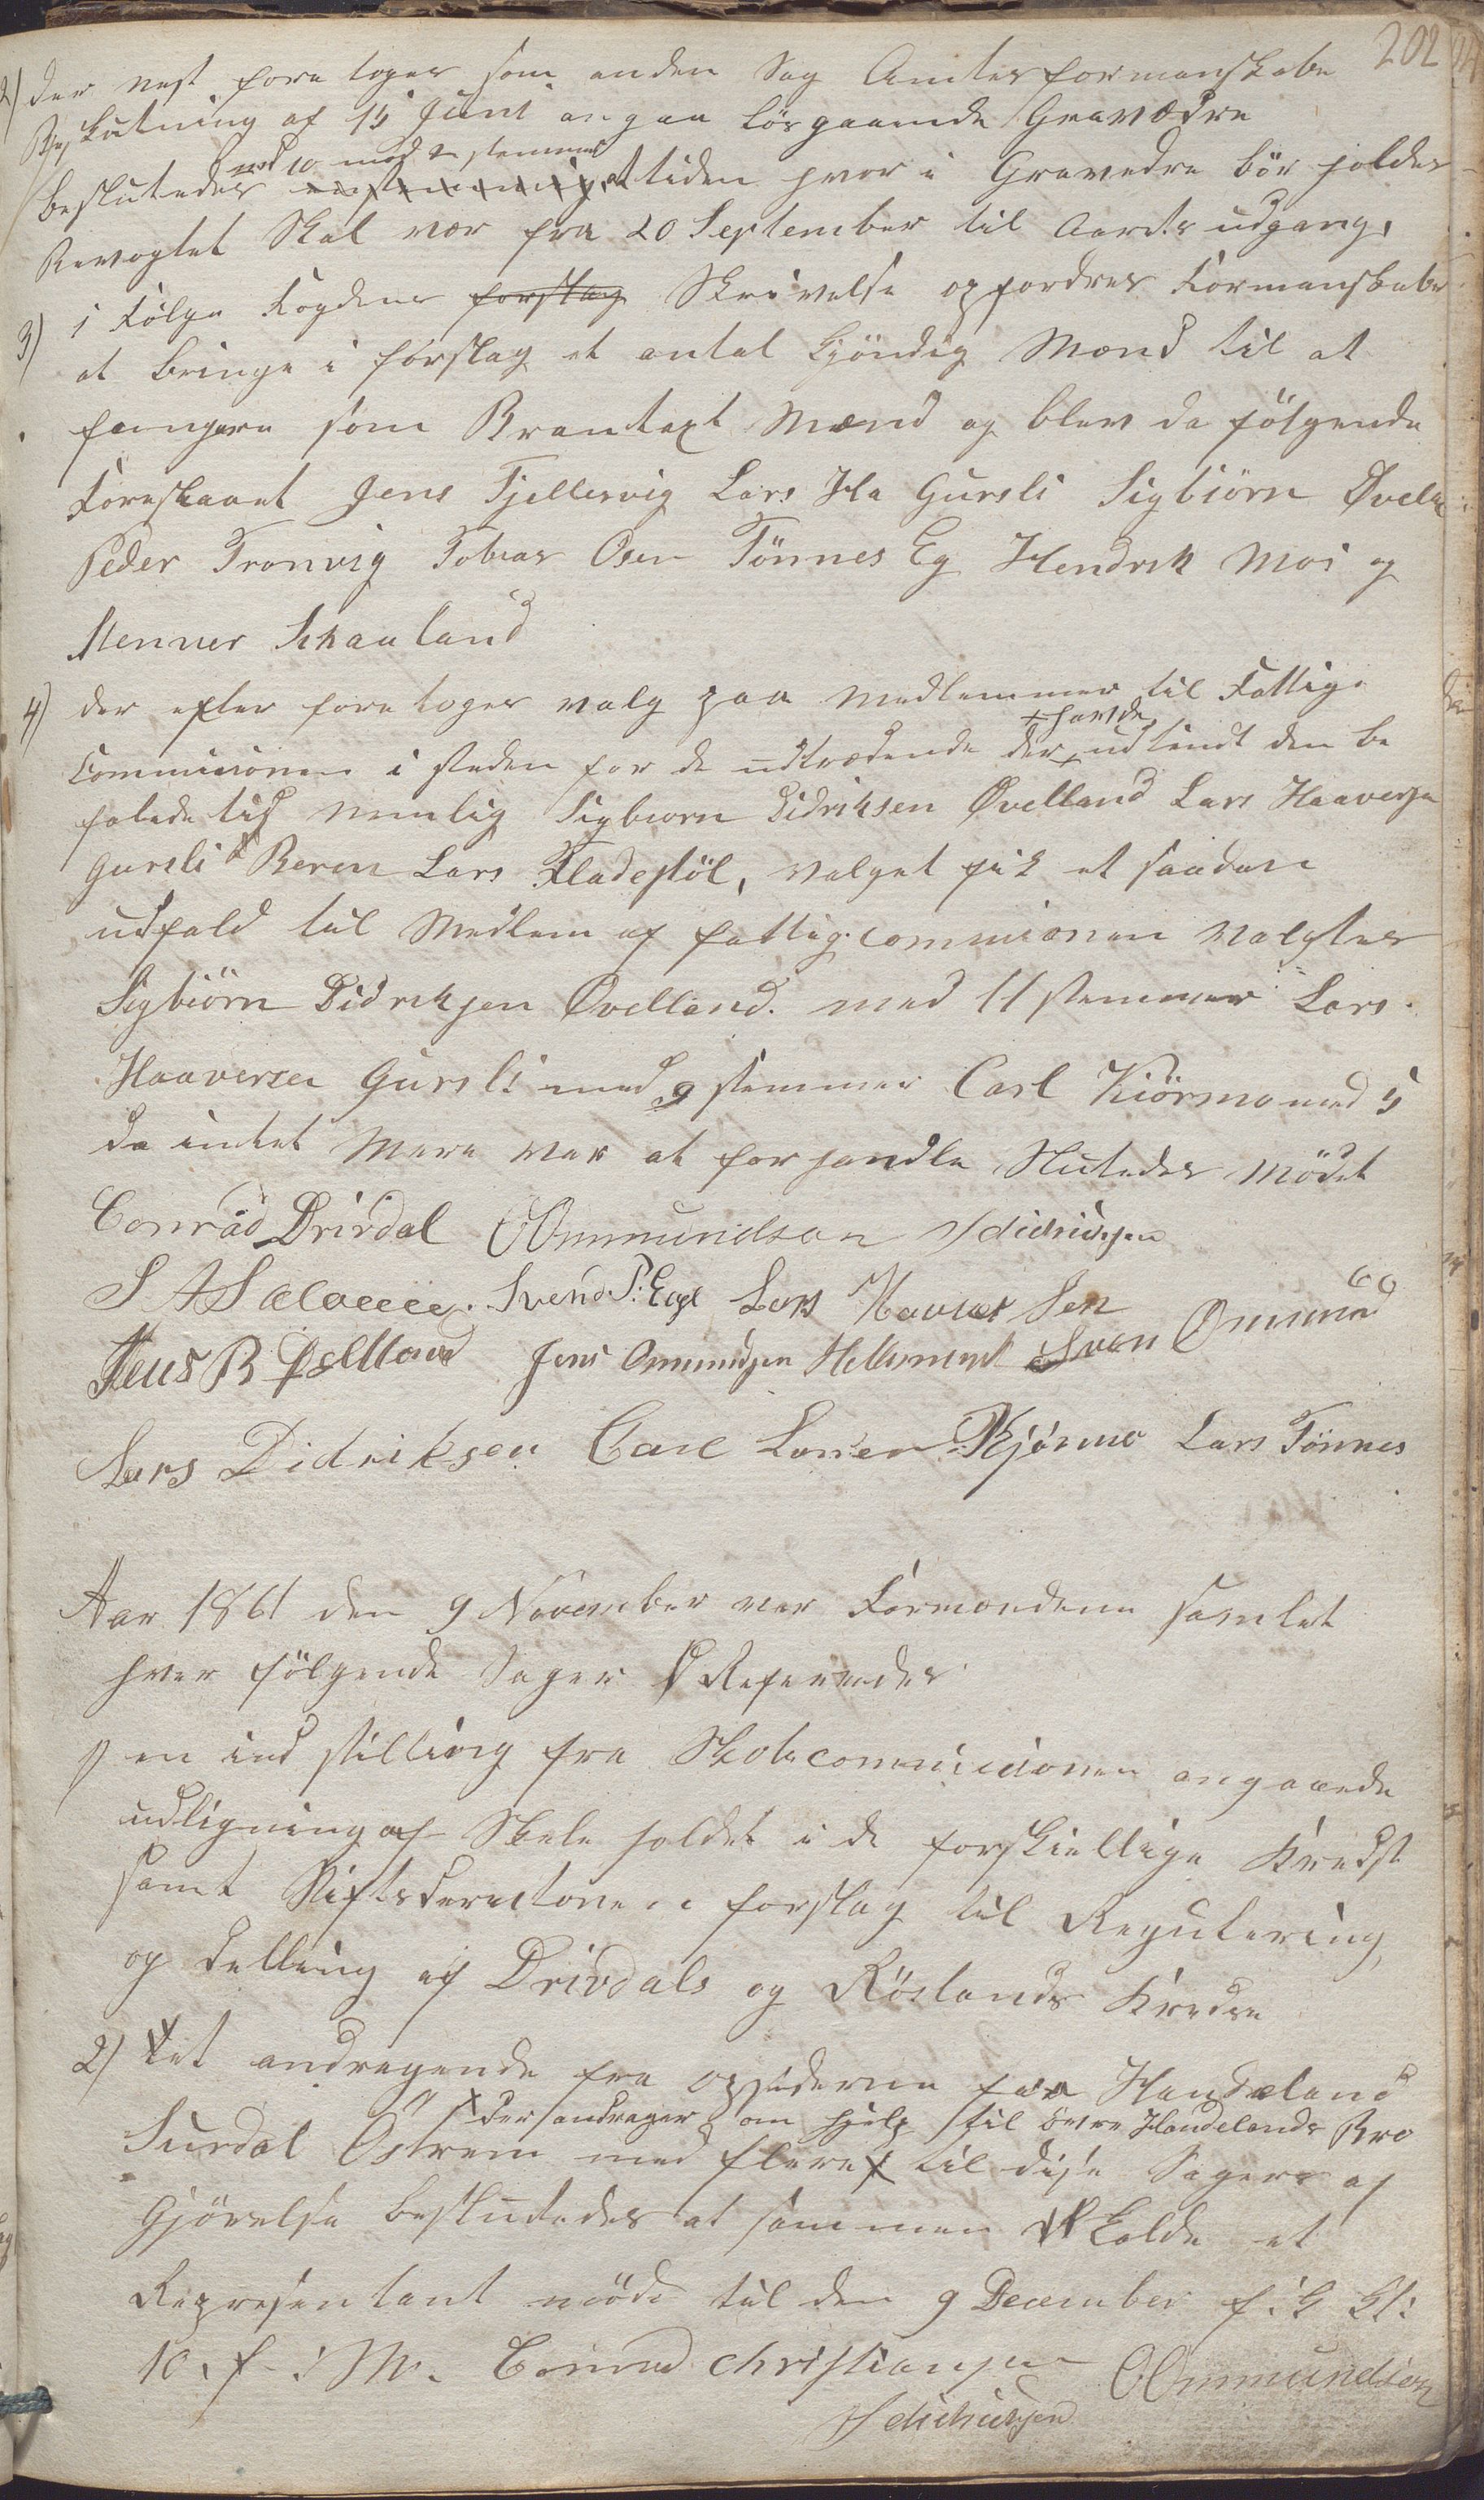 202
2) der nest fore toges som anden Sag Amtesformanskabs
Beslutning af 15 Juni angaa lösgaaende Gravædre
med 10 mod 2 stemmer
beslutedes enstemmig at tiden hvor i Gravedre bör holdes
Bevogtet Skal vær fra 20 September til Aarets udgang,
3) i Fölge Fogdens forslag Skrivelse opfordres Formanskabet
at bringe i forslag et antal kjöndig Mænd til at
fungere som Brantaxt Mænd og blev da fölgende
Foreslaaet Jens Fjellervig Lars Ha Gursli Sigbiörn Øvell
Peder Tronvig Tobias Osen Tönnes Eg Hendrik Moi og
Stenner Skauland
4) der efter fore toges valg paa Medlemmer til Fattig-
Commisionen i steden for de udtrædende der udtient den be
+ havde
falede tid nemlig Sigbiorn Didriksen Øvelland Lars Haaversen
Gursli Beren Lars Fladestöl, valget fik et saadan
udfald til Medlem af fattigcommisionen valgtes
Sigbiörn Didriksen Øvelland. med 11 stemmer Lars
Haaversen Gursli med 9 stemmer Carl Kiörmo med 5
da intet Mere var at forhandle Slutedes Mödet
Conrad Drivdal OOmmundsen S didriksen
S A Salvesen. Svend P. Eege Lars Haaver Sen
Jens Ommundsen Svend Ommund
Lars Didriksen Carl Larsen Kjørmo Lars Tönnes
Aar 1861 den 9 November var Formændene samlet
hvor fölgende Sager Refereredes
1) en ind stilling fra Skolecommissionen angaaede
udligning af Skole holdet i de forskiellige Kredse
samt Stiftsderectionen forslag til Regulering,
og delling af Drivdals og Röslands Kredse
2) et andragende fra opsiderne paa Handeland
x der andrager om hjelp til övre Handelands Bro
Surdal Östrem med flere x til disse Sagers af
Gjörelse besluttedes at sammen kalde et
Representant möde til den 9 December f. G Kl:
10. f. M. Conrad Christiansen OOmmundsen
S didriksen